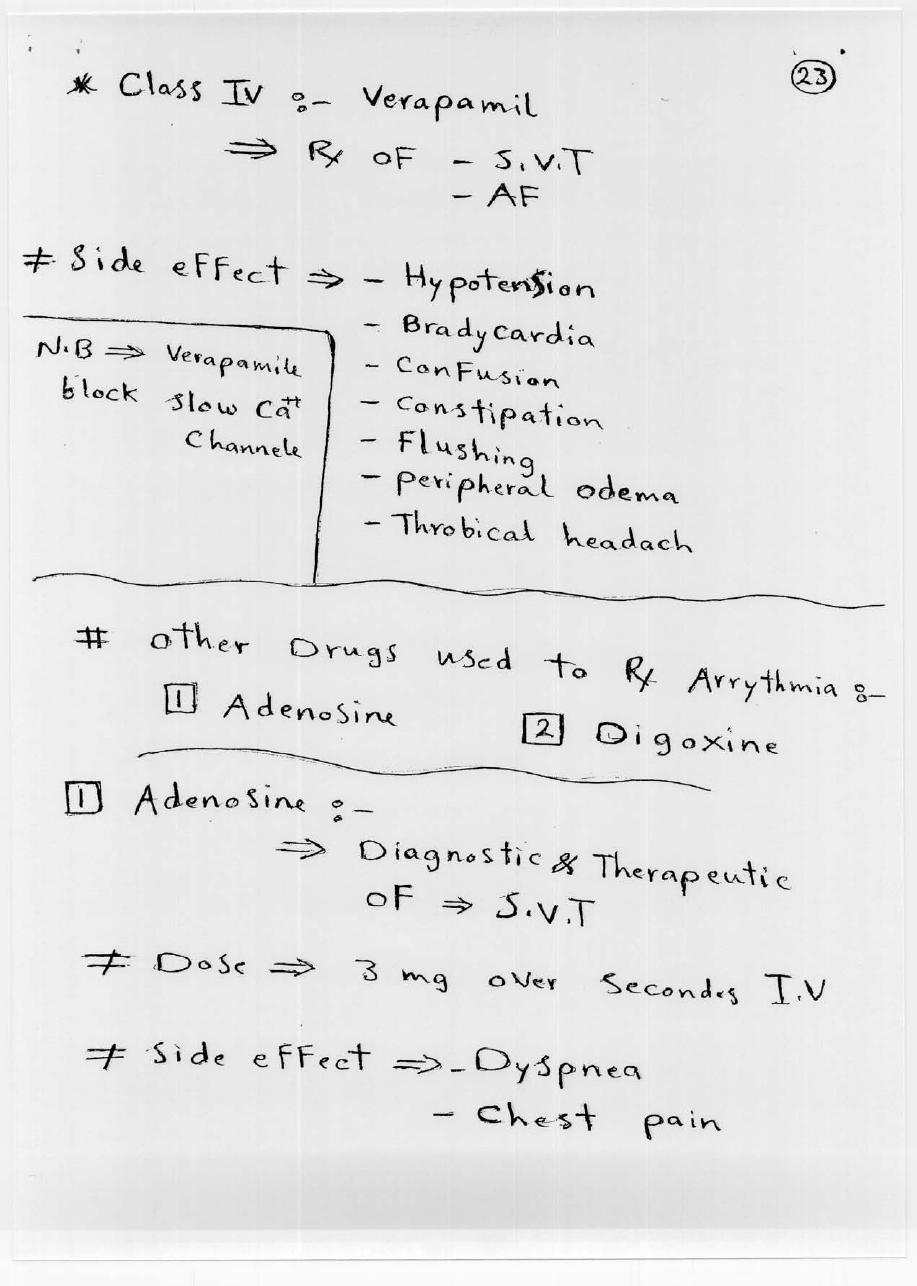 23
* Class IV :- Verapamil
⇒ Rx oF - S.V.T
- AF
≠ Side eFFect ⇒ - Hypotension
- Bradycardia
- ConFusion
- Constipation
- Flushing
- peripheral odema
- Throbical headach
N.B ⇒ Verapamile
block slow Ca++
Channele
# other Drugs used to Rx Arrythmia :-
1 Adenosine
2 Digoxine
1 Adenosine :-
⇒ Diagnostic & Therapeutic
oF ⇒ S.V.T
≠ Dose ⇒ 3 mg over Secondes I.V
≠ Side eFFect ⇒ - Dyspnea
- Chest pain